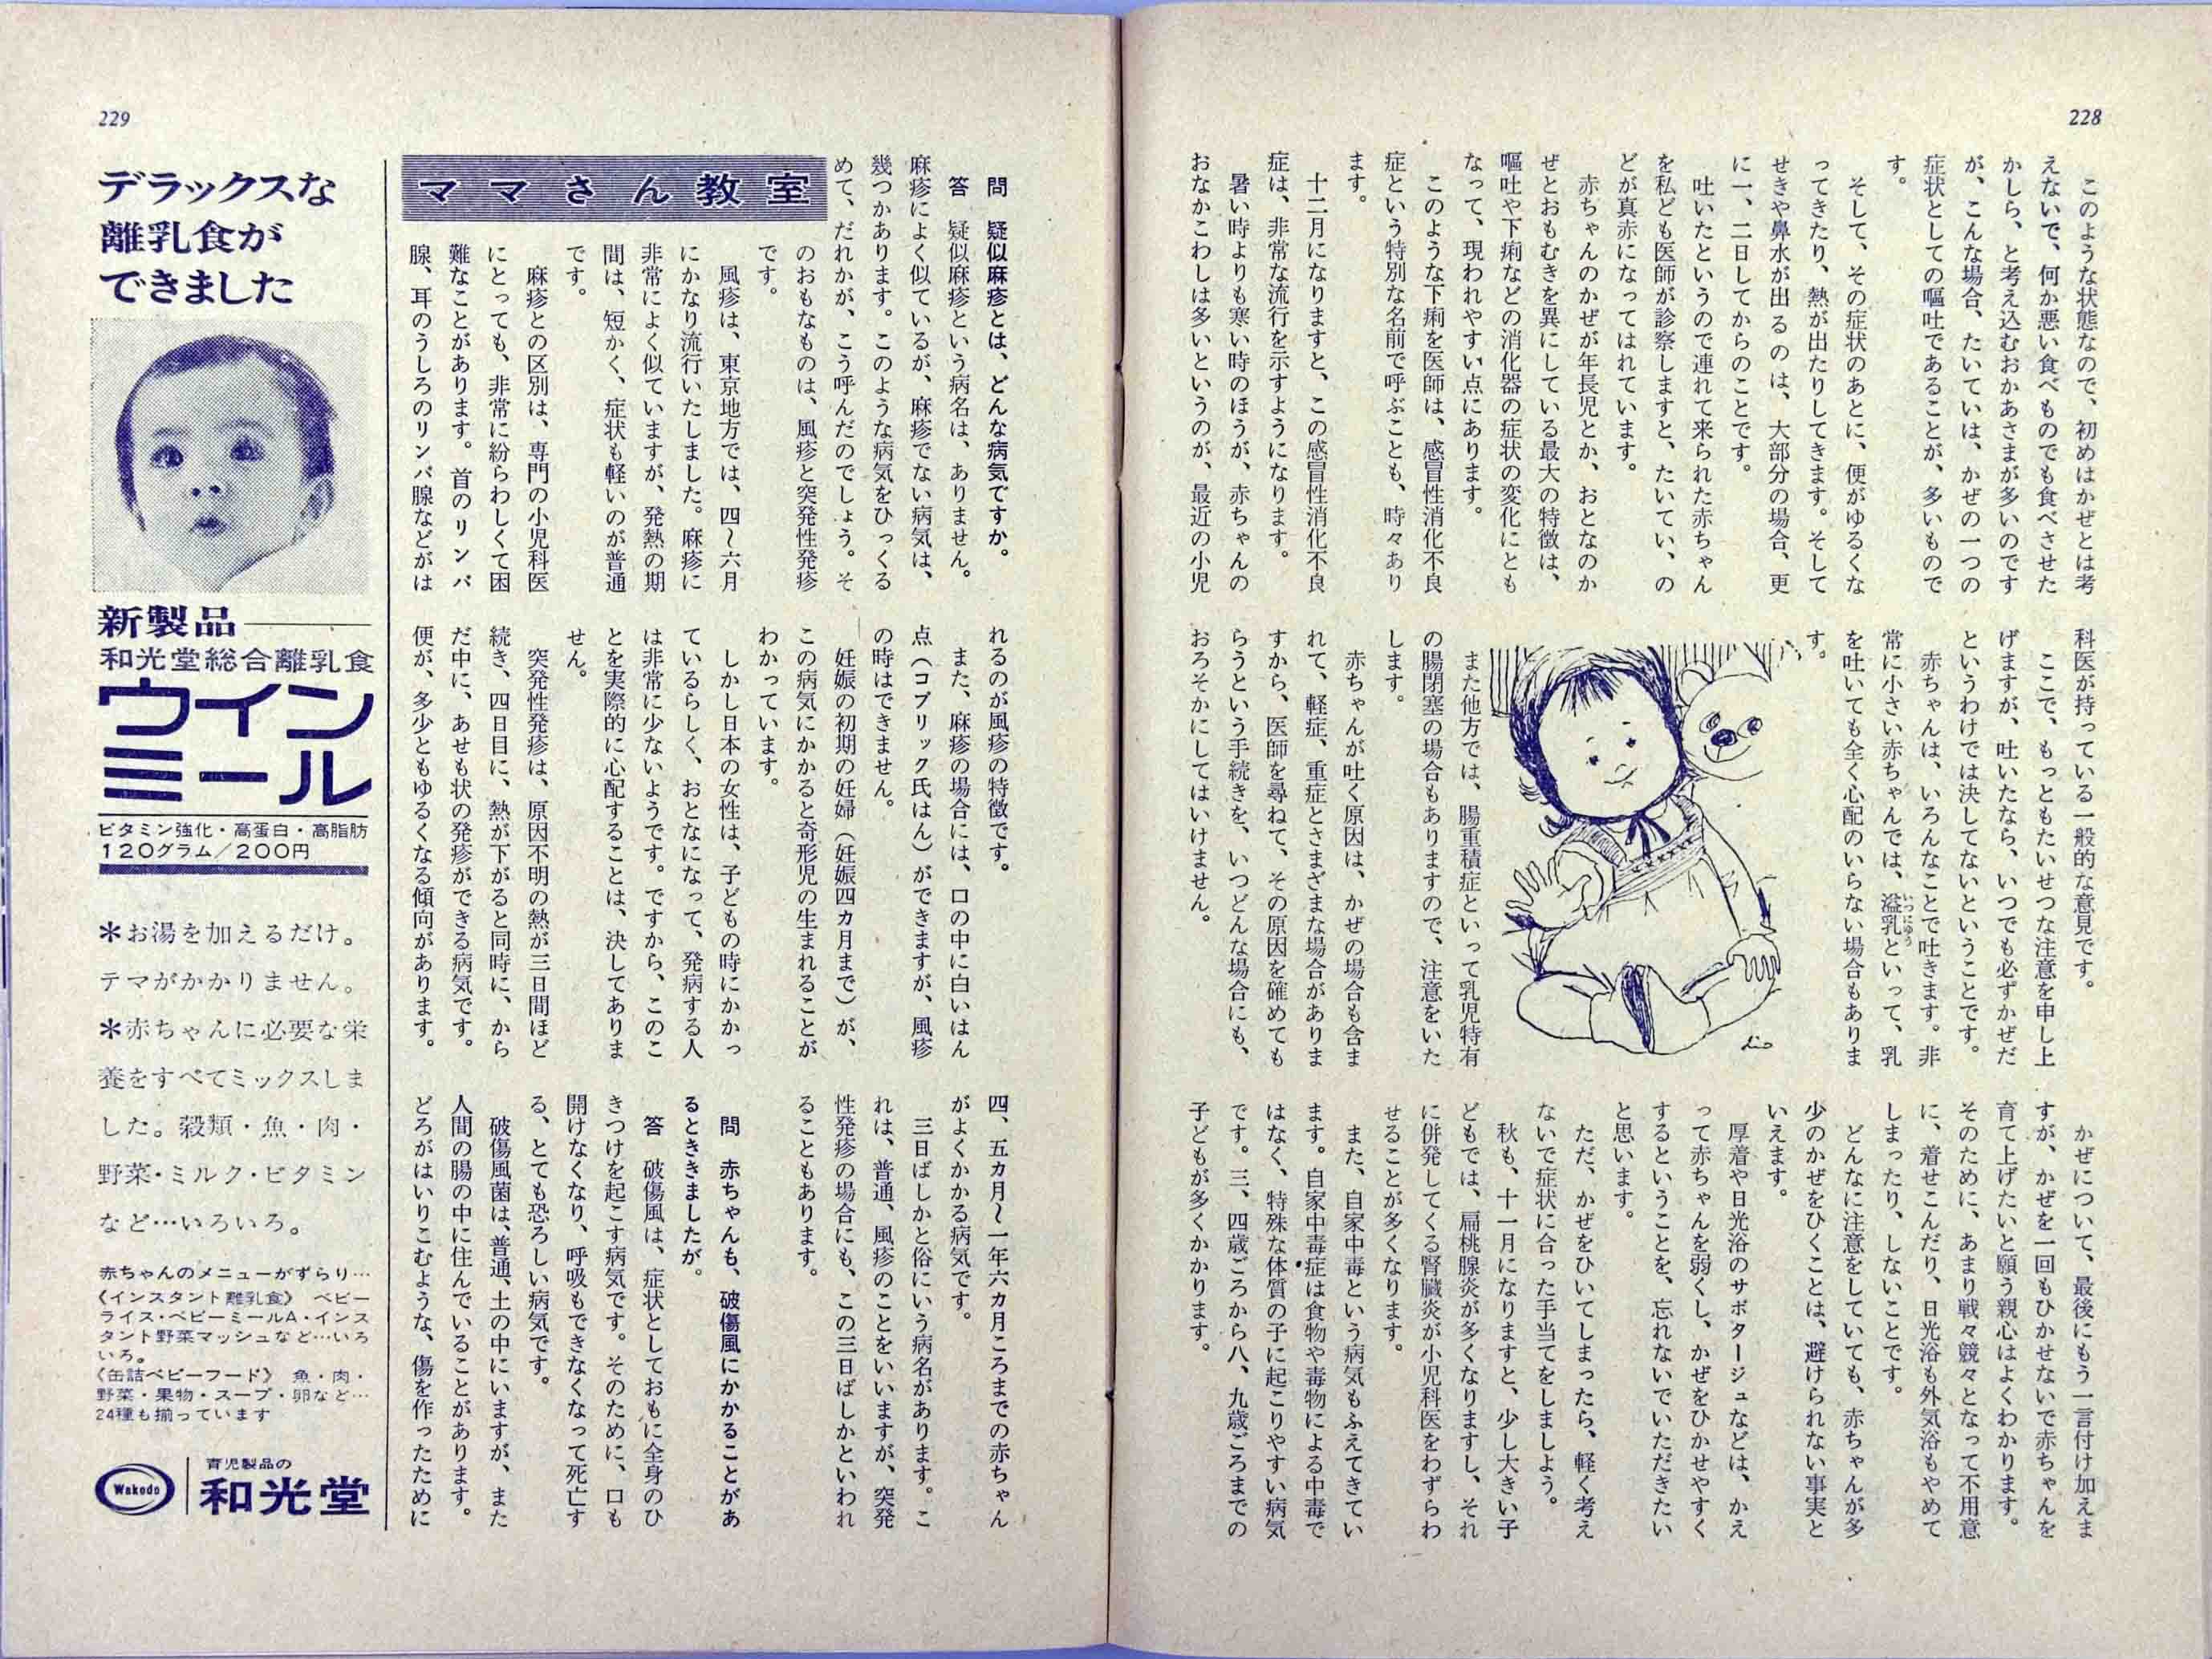 228
このような状態なので、初めはかぜとは考
えないで、何か悪い食べものでも食べさせた
かしら、と考え込むおかあさまが多いのです
が、こんな場合、たいていは、かぜの一つの
症状としての嘔吐であることが、多いもので
す。
そして、その症状のあとに、便がゆるくな
ってきたり、熱が出たりしてきます。そして
せきや鼻水が出るのは、大部分の場合、更
に一、二日してからのことです。
吐いたというので連れて来られた赤ちゃん
を私ども医師が診察しますと、たいてい、の
どが真赤になってはれています。
赤ちゃんのかぜが年長児とか、おとなのか
ぜとおもむきを異にしている最大の特徴は、
嘔吐や下痢などの消化器の症状の変化にとも
なって、現われやすい点にあります。
このような下痢を医師は、感冒性消化不良
症という特別な名前で呼ぶことも、時々あり
ます。
十二月になりますと、この感冒性消化不良
症は、非常な流行を示すようになります。
暑い時よりも寒い時のほうが、赤ちゃんの
おなかこわしは多いというのが、最近の小児
科医が持っている一般的な意見です。
ここで、もっともたいせつな注意を申し上
げますが、吐いたなら、いつでも必ずかぜだ
というわけでは決してないということです。
赤ちゃんは、いろんなことで吐きます。非
常に小さい赤ちゃんでは、溢乳といって、乳
いつにゅう
を吐いても全く心配のいらない場合もありま
す。
また他方では、腸重積症といって乳児特有
の腸閉塞の場合もありますので、注意をいた
します。
赤ちゃんが吐く原因は、かぜの場合も含ま
れて、軽症、重症とさまざまな場合がありま
すから、医師を尋ねて、その原因を確めても
らうという手続きを、いつどんな場合にも、
おろそかにしてはいけません。
かぜについて、最後にもう一言付け加えま
すが、かぜを一回もひかせないで赤ちゃんを
育て上げたいと願う親心はよくわかります。
そのために、あまり戦々競々となって不用意
に、着せこんだり、日光浴も外気浴もやめて
しまったり、しないことです。
どんなに注意をしていても、赤ちゃんが多
少のかぜをひくことは、避けられない事実と
いえます。
厚着や日光浴のサボタージュなどは、かえ
って赤ちゃんを弱くし、かぜをひかせやすく
するということを、忘れないでいただきたい
と思います。
ただ、かぜをひいてしまったら、軽く考え
ないで症状に合った手当てをしましよう。
秋も、十一月になりますと、少し大きい子
どもでは、扁桃腺炎が多くなりますし、それ
に併発してくる腎臓炎が小児科医をわずらわ
せることが多くなります。
また、自家中毒という病気もふえてきてい
ます。自家中毒症は食物や毒物による中毒で
はなく、特殊な体質の子に起こりやすい病気
です。三、四歳ごろから八、九歳ごろまでの
子どもが多くかかります。
229
ママさん教室
問　疑似麻疹とは、どんな病気ですか。
答　疑似麻疹という病名は、ありません。
麻疹によく似ているが、麻疹でない病気は、
幾つかあります。このような病気をひっくる
めて、だれかが、こう呼んだのでしょう。そ
のおもなものは、風疹と突発性発疹
です。
風疹は、東京地方では、四〜六月
にかなり流行いたしました。麻疹に
非常によく似ていますが、発熱の期
間は、短かく、症状も軽いのが普通
です。
麻疹との区別は、専門の小児科医
にとっても、非常に紛らわしくて困
難なことがあります。首のリンパ
腺、耳のうしろのリンパ腺などがは
れるのが風疹の特徴です。
また、麻疹の場合には、口の中に白いはん
点（コプリック氏はん）ができますが、風疹
の時はできません。
妊娠の初期の妊婦（妊娠四カ月まで）が、
この病気にかかると奇形児の生まれることが
わかっています。
しかし日本の女性は、子どもの時にかかっ
ているらしく、おとなになって、発病する人
は非常に少ないようです。ですから、このこ
とを実際的に心配することは、決してありま
せん。
突発性発疹は、原因不明の熱が三日間ほど
続き、四日目に、熱が下がると同時に、から
だ中に、あせも状の発疹ができる病気です。
便が、多少ともゆるくなる傾向があります。
四、五カ月〜一年六カ月ころまでの赤ちゃん
がよくかかる病気です。
三日ばしかと俗にいう病名があります。こ
れは、普通、風疹のことをいいますが、突発
性発疹の場合にも、この三日ばしかといわれ
ることもあります。
問　赤ちゃんも、破傷風にかかることがあ
るとききましたが。
答　破傷風は、症状としておもに全身のひ
きつけを起こす病気です。そのために、口も
開けなくなり、呼吸もできなくなって死亡す
る、とても恐ろしい病気です。
破傷風菌は、普通、土の中にいますが、また
人間の腸の中に住んでいることがあります。
どろがはいりこむような、傷を作ったために
デラックスな
離乳食が
できました
新製品
和光堂総合離乳食
ウイン
ミール
ビタミン強化・高蛋白・高脂肪
120グラム／200円
＊お湯を加えるだけ。
テマがかかりません。
＊赤ちゃんに必要な栄
養をすべてミックスしま
した。穀類・魚・肉・
野菜・ミルク・ビタミン
など…いろいろ。
赤ちゃんのメニューがずらり…
《インスタント離乳食》 ベビー
ライス・ベビーミールA・インス
タント野菜マッシュなど…いろ
いろ。
《缶詰ベビーフード》 魚・肉・
野菜・果物・スープ・卵など…
24種も揃っています
Wakodo
育児製品の
和光堂